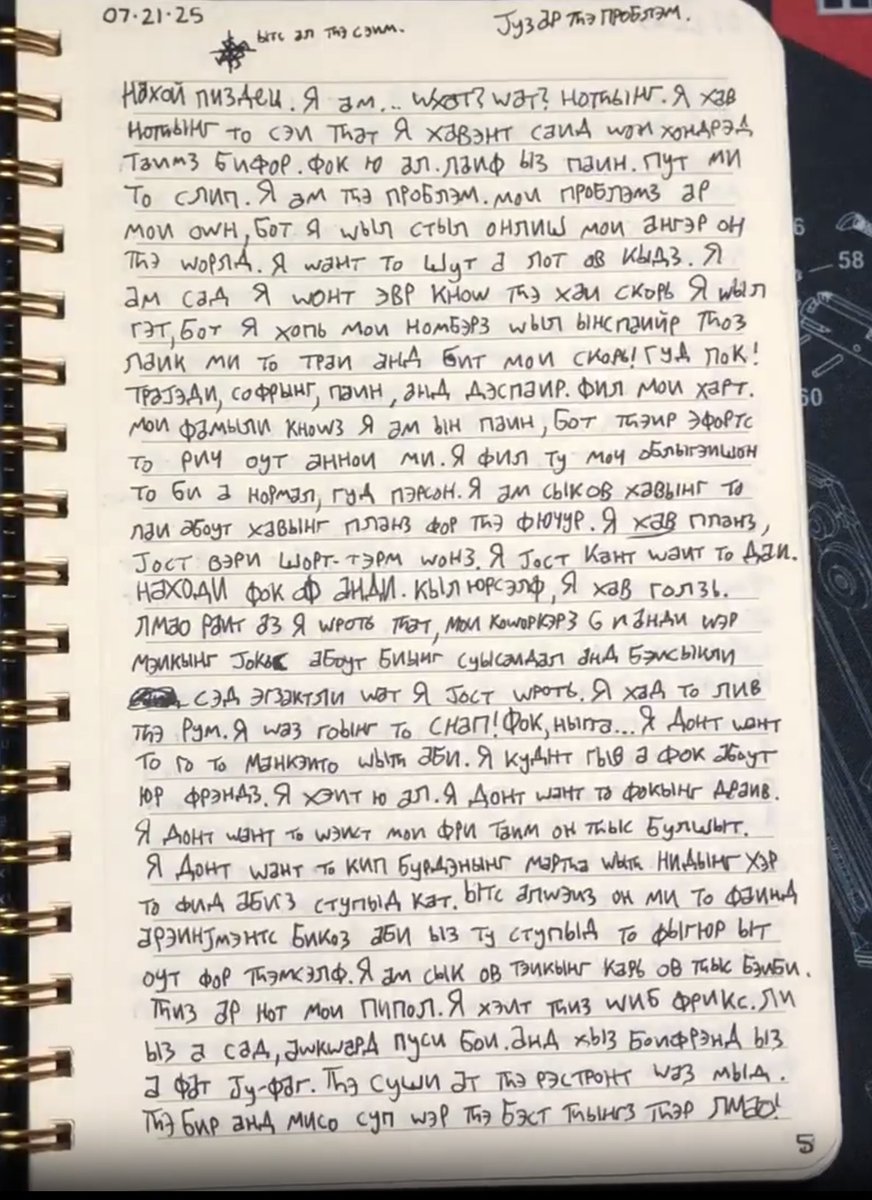 07·21·25
ЫТС ӘЛ ТҺЭ СЭИМ. ЈУЗ ӘР ТҺЭ ПРОБЛЭМ.
НАХОЙ ПИЗДЕЦ. Я ӘМ... WХӘТ? WӘТ? НОТҺЫНГ. Я ХӘВ
НОТҺЫНГ ТО СЭИ ТҺӘТ Я ХӘВЭНТ СӘИД WӘН ХОНДРЭД
ТӘИМЗ БИФОР. ФОК Ю ӘЛ. ЛӘИФ ЫЗ ПӘИН. ПУТ МИ
ТО СЛИП. Я ӘМ ТҺЭ ПРОБЛЭМ. МОИ ПРОБЛЭМЗ ӘР
МОИ ОWН, БОТ Я WЫЛ СТЫЛ ОНЛИШ МОИ ӘНГЭР ОН
ТҺЭ WОРЛД. Я WӘНТ ТО ШУТ Ә ЛОТ ОВ КЫДЗ. Я
ӘМ СӘД Я WОНТ ЭВР КНОW ТҺЭ ХӘИ СКОРЬ Я WЫЛ
ГЭТ, БОТ Я ХОПЬ МОИ НОМБЭРЗ WЫЛ ЫНСПӘИЙР ТҺОЗ
ЛӘИК МИ ТО ТРӘИ ӘНД БИТ МОИ СКОРЬ! ГУД ЛОК!
ТРӘЈЭДИ, СОФРЫНГ, ПӘИН, ӘНД ДЭСПӘИР. ФИЛ МОИ ХӘРТ.
МОИ ФӘМЫЛИ КНОWЗ Я ӘМ ЫН ПӘИН, БОТ ТҺЭИР ЭФОРТС
ТО РИЧ ОУТ ӘННОИ МИ. Я ФИЛ ТУ МОЧ ОБЛЫГЭИШОН
ТО БИ Ә НОРМӘЛ, ГУД ПЭРСОН. Я ӘМ СЫК ОВ ХӘВЫНГ ТО
ЛӘИ ӘБОУТ ХӘВЫНГ ПЛӘНЗ ФОР ТҺЭ ФЮЧУР. Я ХӘВ ПЛӘНЗ,
ЈОСТ ВЭРИ ШОРТ-ТЭРМ WОНЗ. Я ЈОСТ КӘНТ WӘИТ ТО ДӘИ.
НӘХОДИ ФОК ОФ ӘНДИ. КЫЛ ЮРСЭЛФ, Я ХӘВ ГОЛЗЬ.
ЛМӘО РӘИТ ӘЗ Я WРОТЬ ТҺӘТ, МОИ КОWОРКЭРЗ G И ӘНДИ WЭР
МЭИКЫНГ ЈОКЬС ӘБОУТ БИЫНГ СУЫСӘИДӘЛ ӘНД БЭИСЫКЛИ
СЭД ЭГЗӘКТЛИ WӘТ Я ЈОСТ WРОТЬ. Я ХӘД ТО ЛИВ
ТҺЭ РУМ. Я WӘЗ ГОЫНГ ТО СНӘП! ФОК, НЫГГӘ... Я ДОНТ WӘНТ
ТО ГО ТО МӘНКЭИТО WЫТҺ ӘБИ. Я КУДНТ ГЫВ Ә ФОК ӘБОУТ
ЮР ФРЭНДЗ. Я ХЭИТ Ю ӘЛ. Я ДОНТ WӘНТ ТО ФОКЫНГ ДРӘИВ.
Я ДОНТ WӘНТ ТО WЭИСТ МОИ ФРИ ТӘИМ ОН ТҺЫС БУЛШЫТ.
Я ДОНТ WӘНТ ТО КИП БУРДЭНЫНГ МӘРТҺӘ WЫТҺ НИДЫНГ ХЭР
ТО ФИД ӘБИЗ СТУПЫД КӘТ. ЫТС ӘЛWЭИЗ ОН МИ ТО ФӘИНД
ӘРЭИНЈМЭНТС БИКОЗ ӘБИ ЫЗ ТУ СТУПЫД ТО ФЫГЮР ЫТ
ОУТ ФОР ТҺЭМСЭЛФ. Я ӘМ СЫК ОВ ТЭИКЫНГ КӘРЬ ОВ ТҺЫС БЭИБИ.
ТҺИЗ ӘР НОТ МОИ ПИПОЛ. Я ХЭИТ ТҺИЗ WИБ ФРИКС. ЛИ
ЫЗ Ә СӘД, ӘWКWӘРД ПУСИ БОИ. ӘНД ХЫЗ БОИФРЭНД ЫЗ
Ә ФӘТ ЈУ-ФӘГ. ТҺЭ СУШИ ӘТ ТҺЭ РЭСТРОНТ WӘЗ МЫД.
ТҺЭ БИР ӘНД МИСО СУП WЭР ТҺЭ БЭСТ ТҺЫНГЗ ТҺЭР ЛМӘО!
5
6
58
60